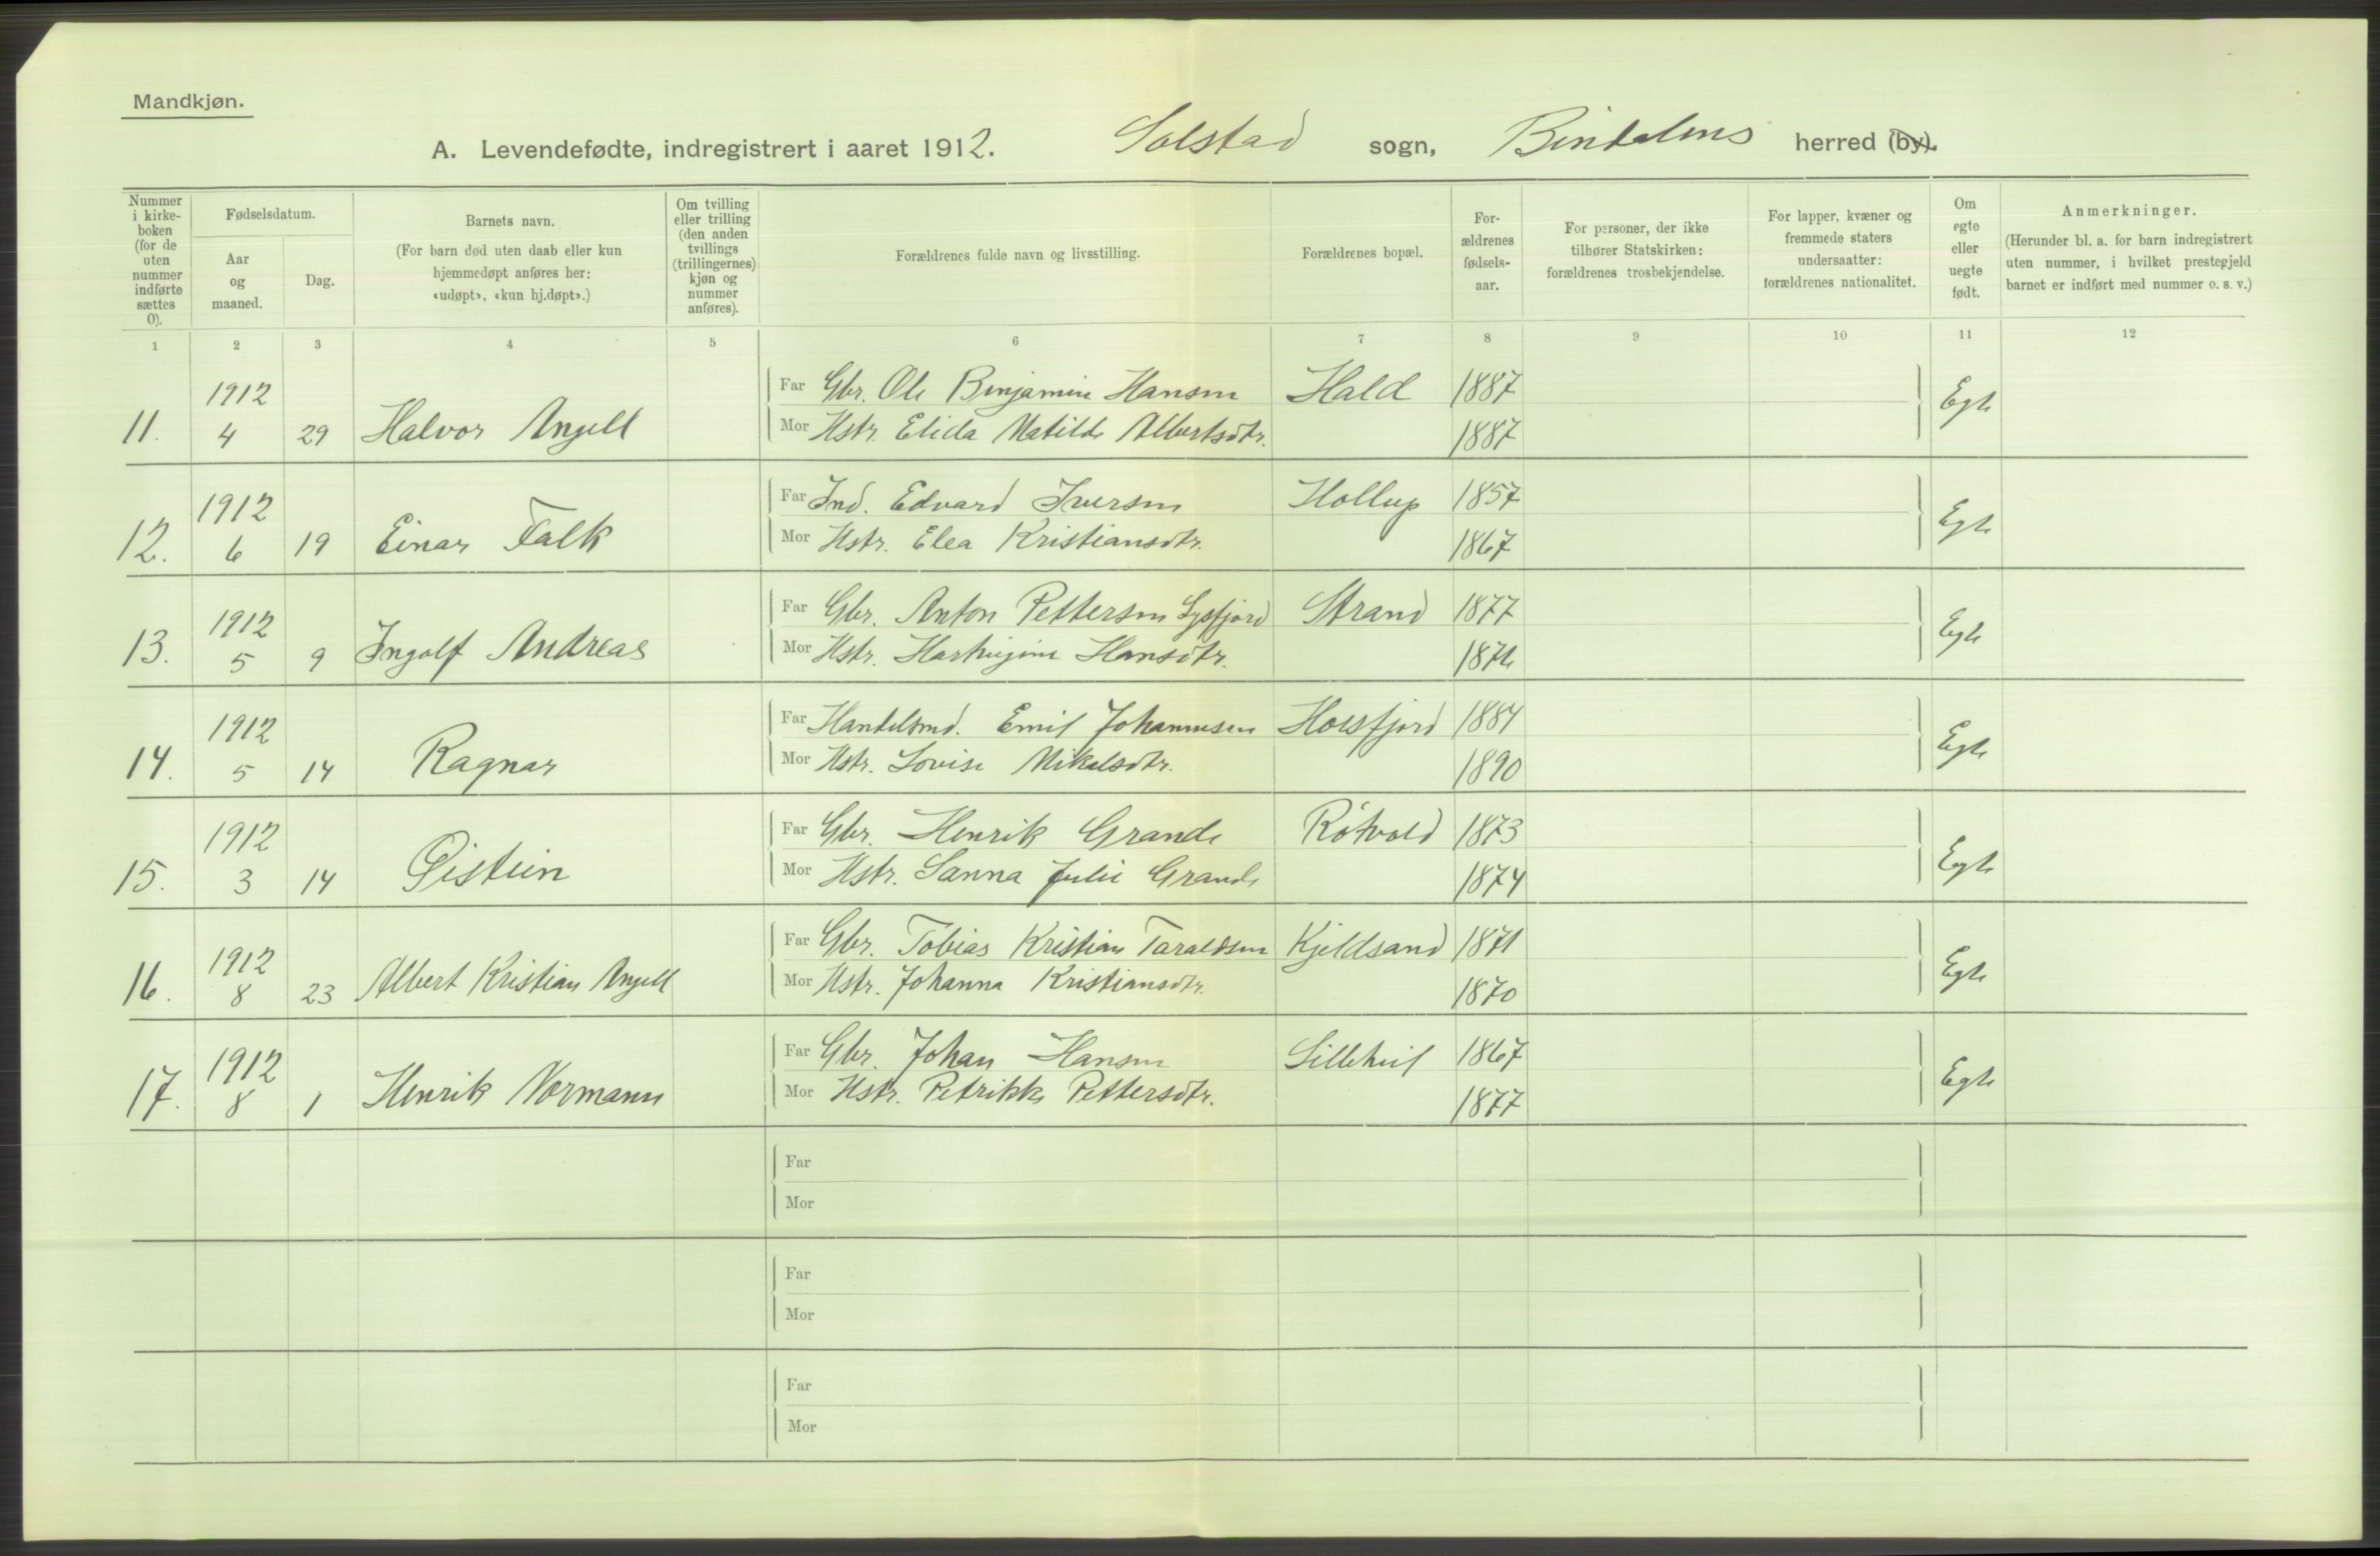 Mandkjøn.
A. Levendefødte, indregistrert i aaret 1912. Solstad sogn, Bindalens herred (by).
Nummer i kirke-boken (for de uten nummer indførte sættes 0).
Fødselsdatum.
Aar og maaned.
Dag.
Barnets navn.
(For barn død uten daab eller kun hjemmedøpt anføres her: «udøpt», «kun hj.døpt».)
Om tvilling eller trilling (den anden tvillings (trillingernes) kjøn og nummer anføres).
Forældrenes fulde navn og livsstilling.
Forældrenes bopæl.
For-ældrenes fødsels-aar.
For personer, der ikke tilhører Statskirken: forældrenes trosbekjendelse.
For lapper, kvæner og fremmede staters undersaatter: forældrenes nationalitet.
Om egte eller uegte født.
Anmerkninger.
(Herunder bl. a. for barn indregistrert uten nummer, i hvilket prestegjeld barnet er indført med nummer o. s. v.)
1 2 3 4 5 6 7 8 9 10 11 12
1912 Far Gbr. Ole Benjamin Hansen Hald 1887 Egte
11. 4 29 Halvor Angell Mor Hstr. Elida Matilde Albertsdtr. 1887
1912 Far Ind. Edvard Iversen Hollup 1857 Egte
12. 6 19 Einar Falk Mor Hstr. Elea Kristiansdtr. 1867
1912 Far Gbr. Anton Pettersen Lysfjord Strand 1877 Egte
13. 5 9 Ingolf Andreas Mor Hstr. Hansdtr.
1912 Far Handelsmd. Emil Johannesen Horsfjord 1884 Egte
14. 5 14 Ragnar Mor Hstr. Lovise Mikalsdtr. 1890
1912 Far Gbr. Henrik Grande Røtvold 1873 Egte
15. 3 14 Øistein Mor Hstr. Sanna Julie Grande 1874
1912 Far Gbr. Tobias Kristian Taraldsen Kjeldsand 1871 Egte
16. 8 23 Albert Kristian Angell Mor Hstr. Johanna Kristiansdtr. 1870
1912 Far Gbr. Johan Hansen 1867 Egte
17. 8 1 Henrik Normann Mor Hstr. Petrikke Pettersdtr. 1877
Far
Mor
Far
Mor
Far
Mor